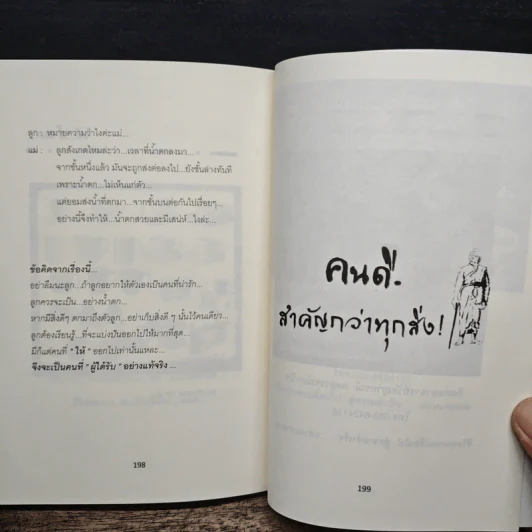 ลูก : หมายความว่าไงคะแม่...
แม่ : ลูกสังเกตไหมล่ะว่า...เวลาที่น้ำตกลงมา...
จากชั้นหนึ่งแล้ว มันจะถูกส่งต่อลงไป...ยังชั้นล่างทันที
เพราะน้ำตก...ไม่เห็นแก่ตัว...
แต่ยอมส่งน้ำที่ตกมา...จากชั้นบนต่อกันไปเรื่อยๆ...
อย่างนี้จึงทำให้...น้ำตกสวยและมีเสน่ห์...ไงล่ะ...
ข้อคิดจากเรื่องนี้...
อย่าลืมนะลูก...ถ้าลูกอยากให้ตัวเองเป็นคนที่น่ารัก...
ลูกควรจะเป็น...อย่างน้ำตก...
หากมีสิ่งดีๆ ตกมาถึงตัวลูก...อย่าเก็บสิ่งดี ๆ นั้นไว้คนเดียว...
ลูกต้องเรียนรู้...ที่จะแบ่งปันออกไปให้มากที่สุด...
มีก็แต่คนที่ " ให้ " ออกไปเท่านั้นแหละ...
จึงจะเป็นคนที่ " ผู้ได้รับ " อย่างแท้จริง ...
198
คนดี.
สำคัญกว่าทุกสิ่ง!
199